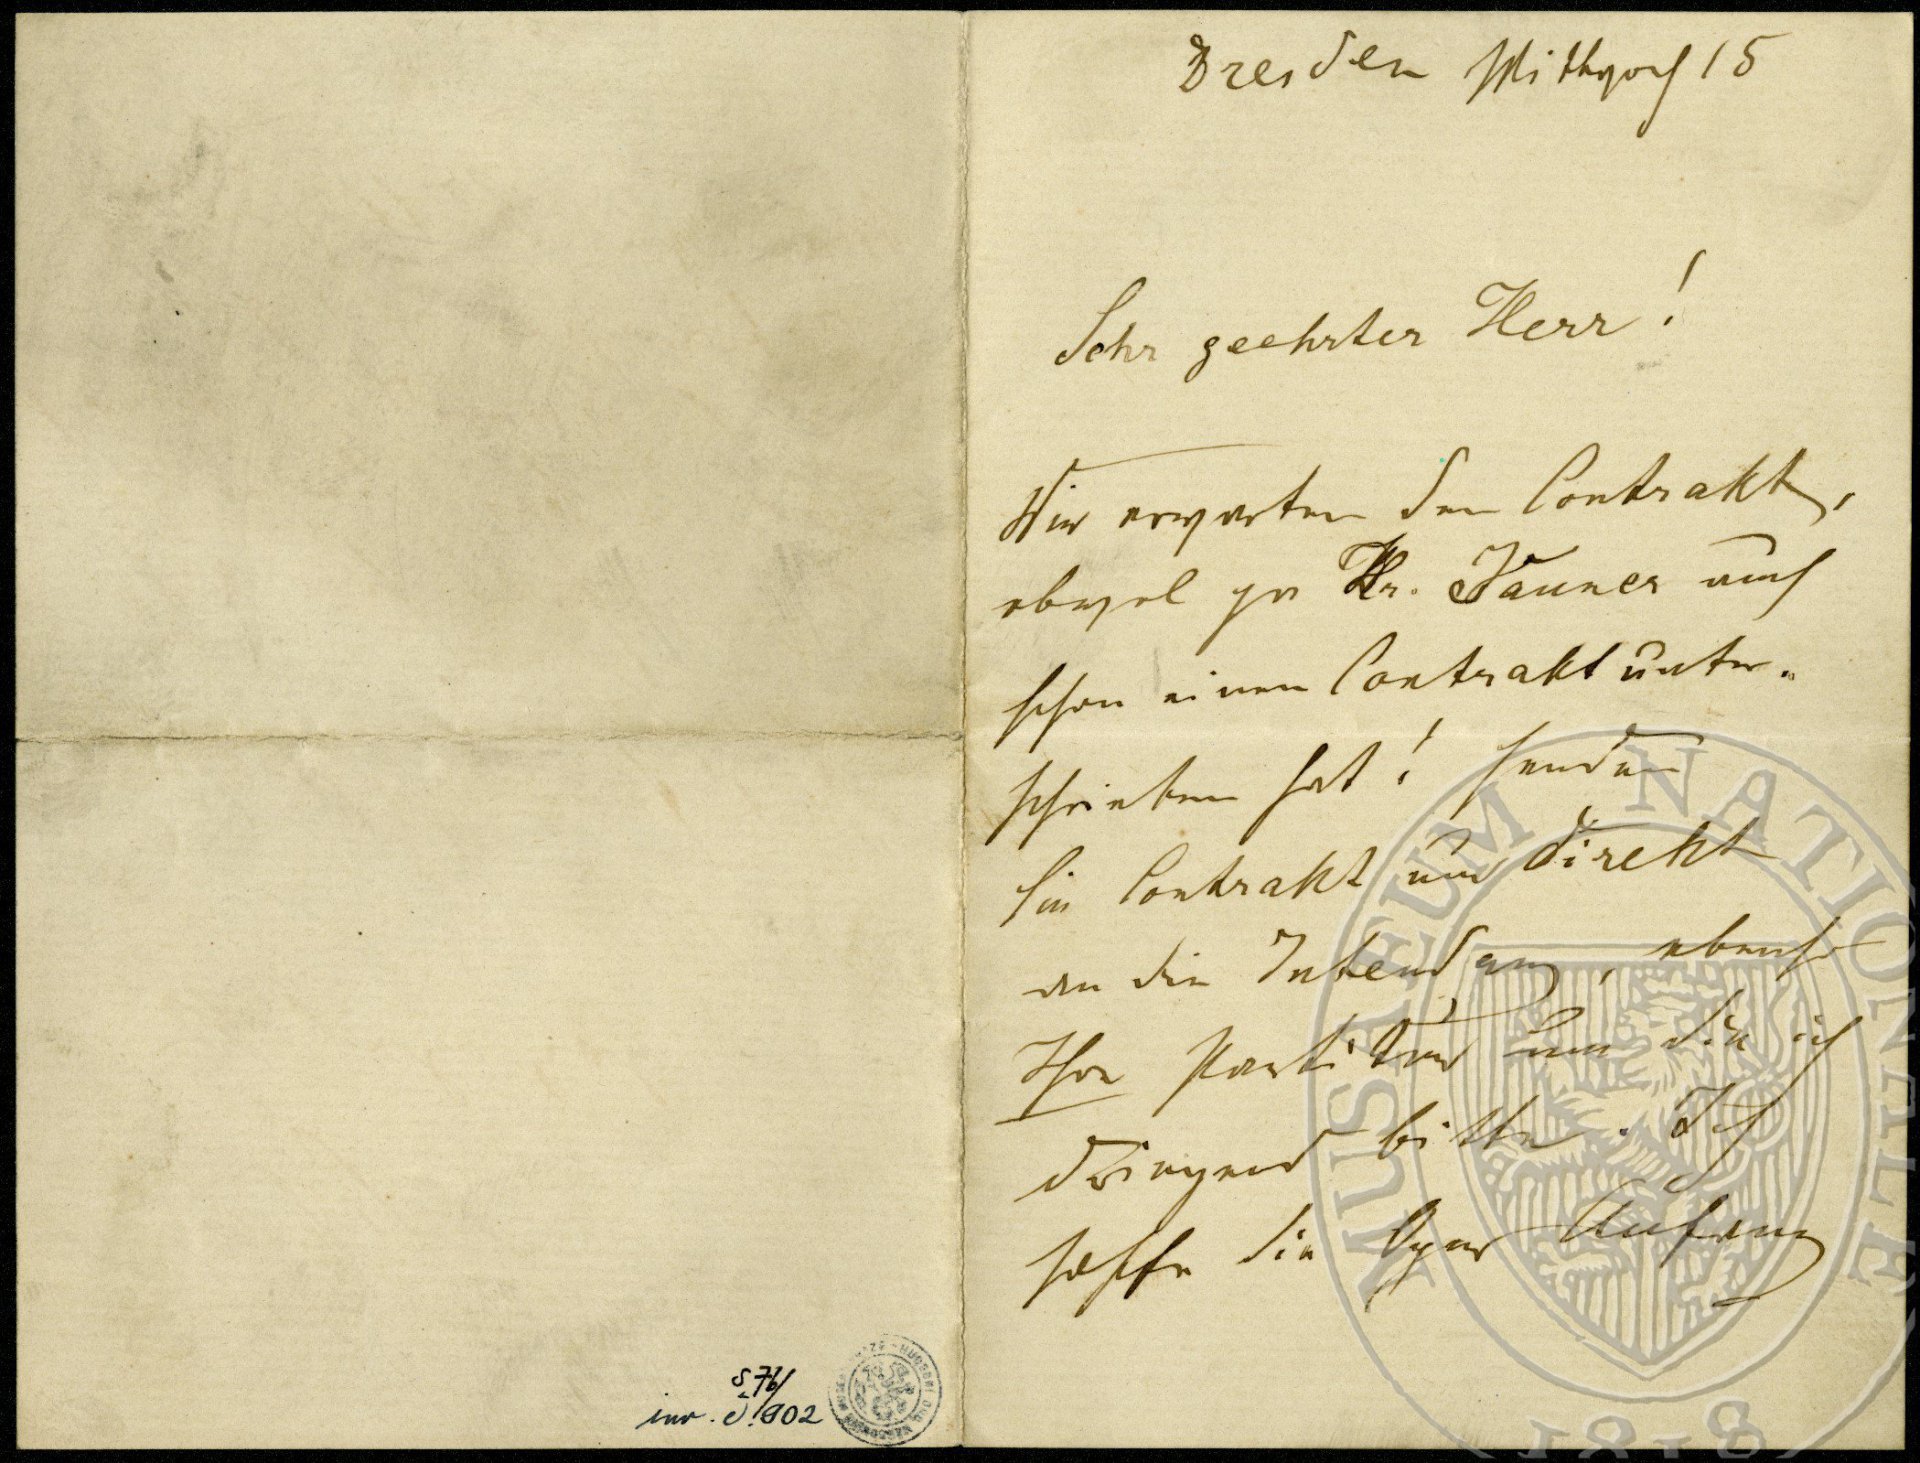 Dresden Mittwoch 15
Sehr geehrter Herr!
Wir erwarten den Contrakt,
obwol ja Hr. Jauner auch
schon einen Contrakt unter-
schrieben hat! Senden
Sie Contrakt nur direkt
an die Intendanz, ebenso
Ihre Partitur um die ich
dringend bitte. Ich
hoffe die Oper Anfang
S 76/
inv. č. 802
MUSAEUM NATIONALE
1818